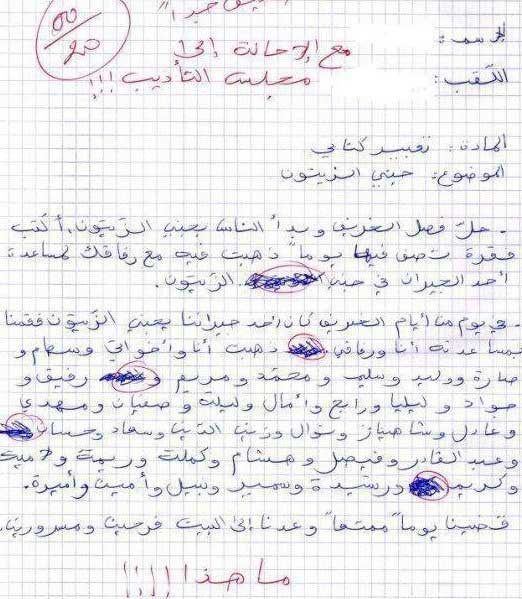 00/20
جدا"
مع الإحالة إلى
مجلس التأديب !!!
الاسم:
اللقب:
المادة: تعبير كتابي
الموضوع: جني الزيتون
- حلّ فصل الخريف وبدأ الناس بجني الزيتون، أكتب
فقرة تصف فيها يوماً ذهبت فيه مع رفاقك لمساعدة
أحد الجيران في جني الزيتون.
- في يوم من أيام الخريف كان أحد جيراننا يجني الزيتون فقمنا
بمساعدته أنا ورفاقي ذهبت أنا وأخواتي وسهام و
صارة ووليد وسليم و محمد و مريم و رفيق و
جواد و ليليا ورابح وأمال وليلة و صفيان ومهدي
وعادل وشاهيناز ونوال وزين الدين وسعاد وحسان
وعبد القادر وفيصل وهشام وكملت وريمة ولامية
وكريم ورشيدة وسمير ونبيل وأمين وأميرة.
قضينا يوماً ممتعاً وعدنا إلى البيت فرحين ومسرورين.
ما هذا !!!!